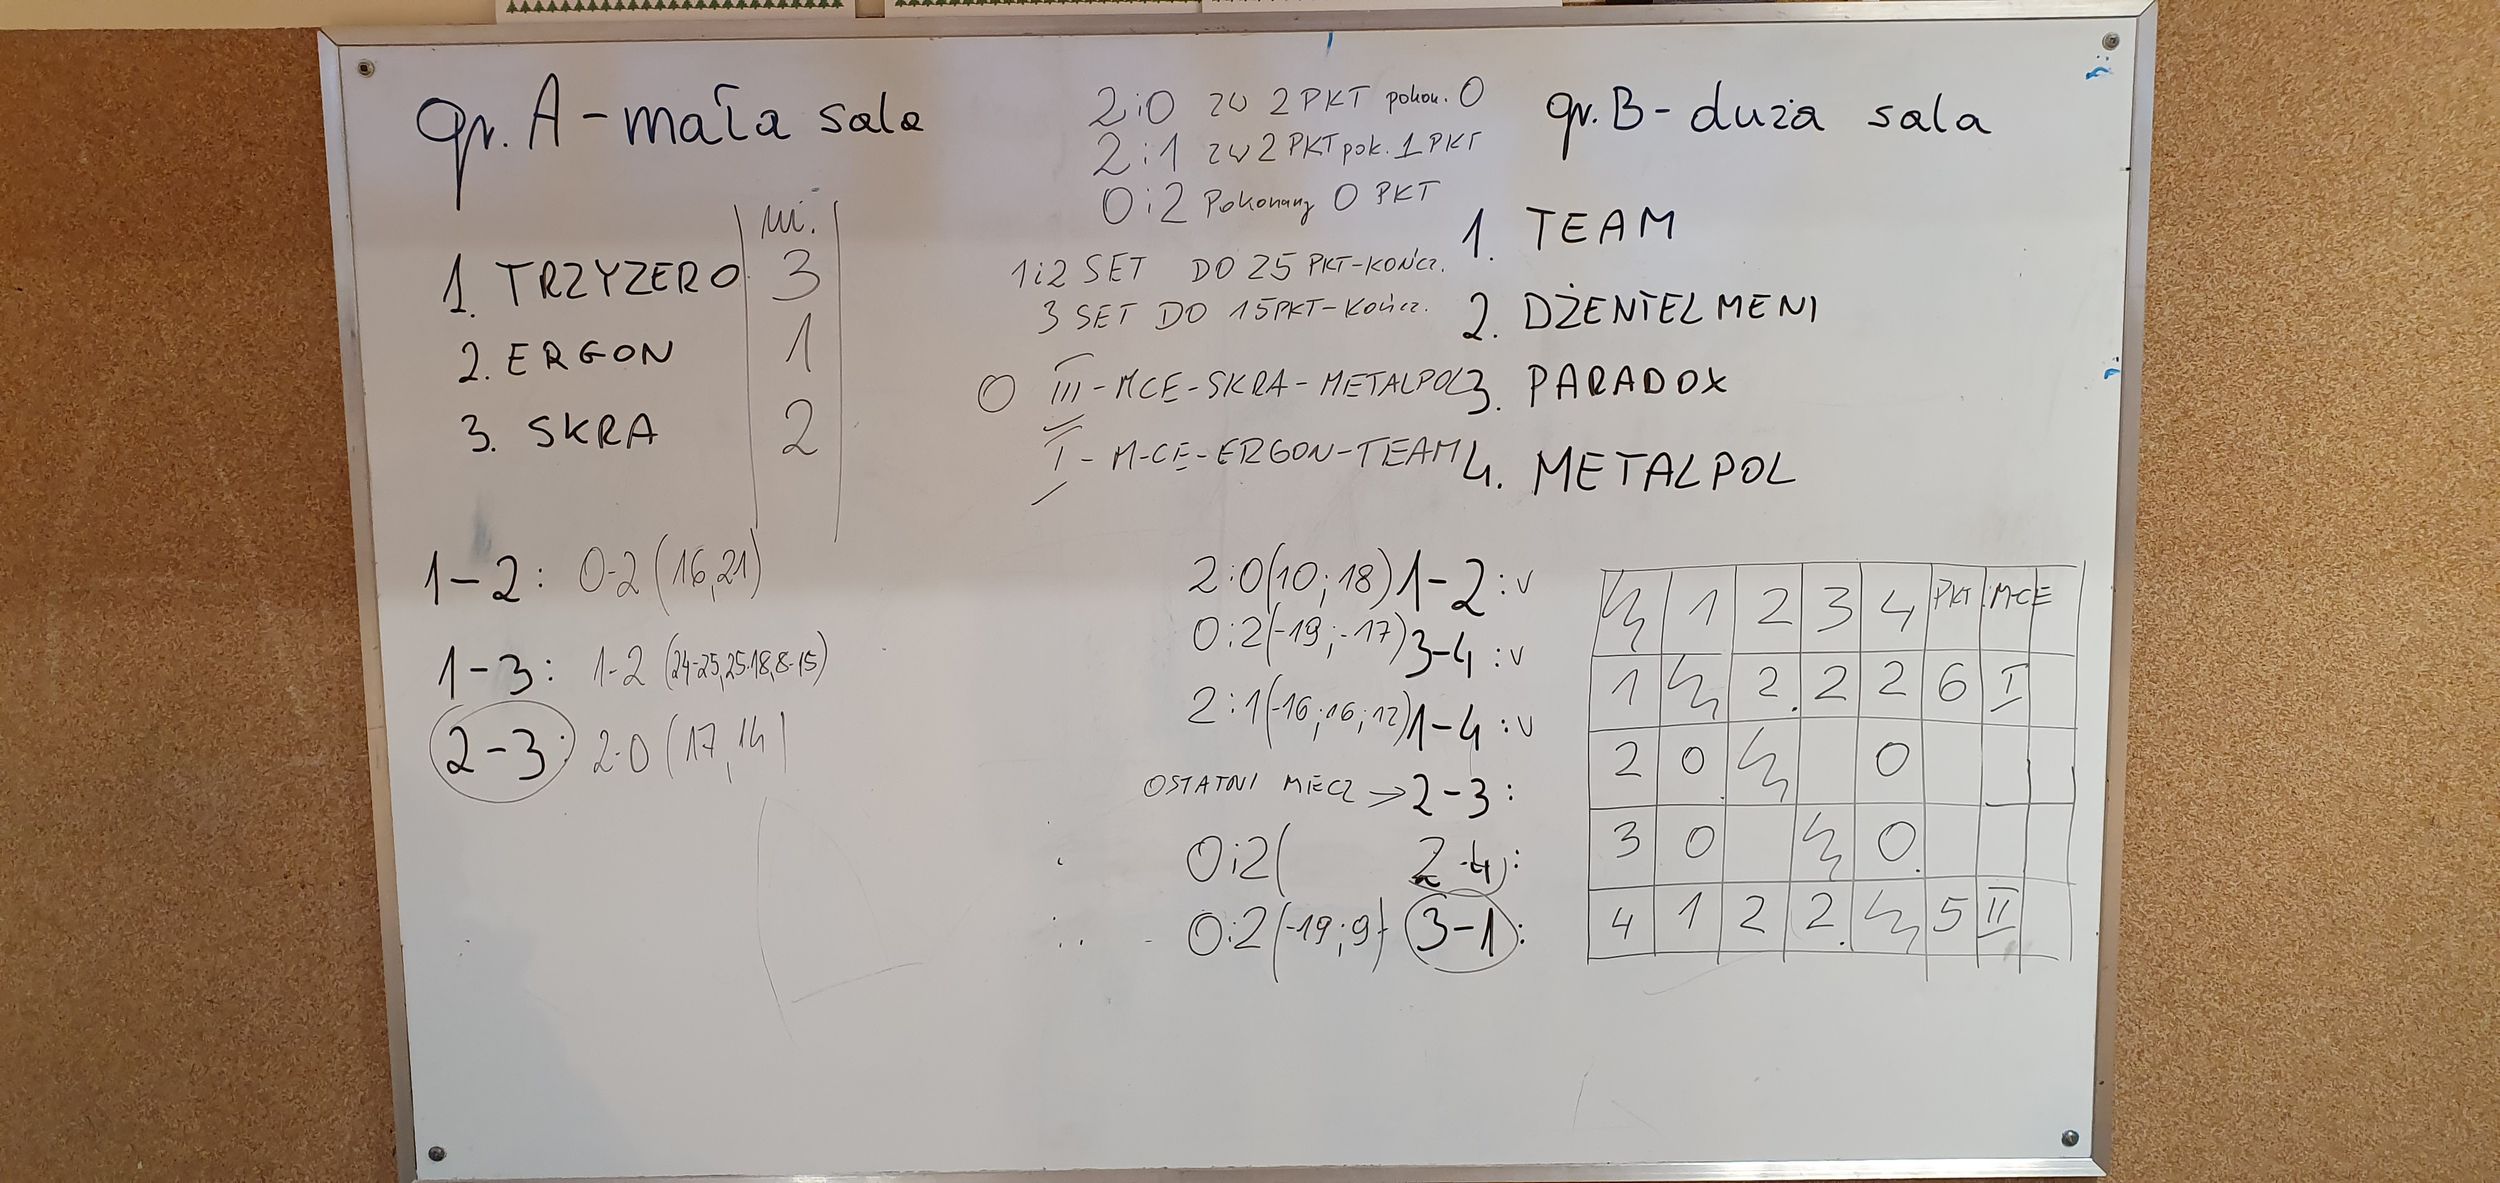 gr. A - mała sala
mi.
1. TRZYZERO 3
2. ERGON 1
3. SKRA 2
1-2: 0-2 (16,21)
1-3: 1-2 (24-25,25-18,8-15)
2-3: 2-0 (17,14)
2:0 zw 2 PKT pokon. 0
2:1 zw 2 PKT pok. 1 PKT
0:2 Pokonany 0 PKT
1i2 SET DO 25 PKT-KOŃCZ.
3 SET DO 15 PKT-KOŃCZ.
0 III-MCE-SKRA-METALPOL
I-M-CE-ERGON-TEAM
gr. B - duża sala
1. TEAM
2. DŻENTELMENI
3. PARADOX
4. METALPOL
2:0(10;18) 1-2: v
0:2(-19;-17) 3-4: v
2:1(-16;16;12) 1-4: v
OSTATNI MECZ → 2-3:
0:2( 2-4:
0:2(-19;9) 3-1:
1 2 3 4 PKT M-CE
1 2 2 2 6 I
2 0 0
3 0 0
4 1 2 2 5 II